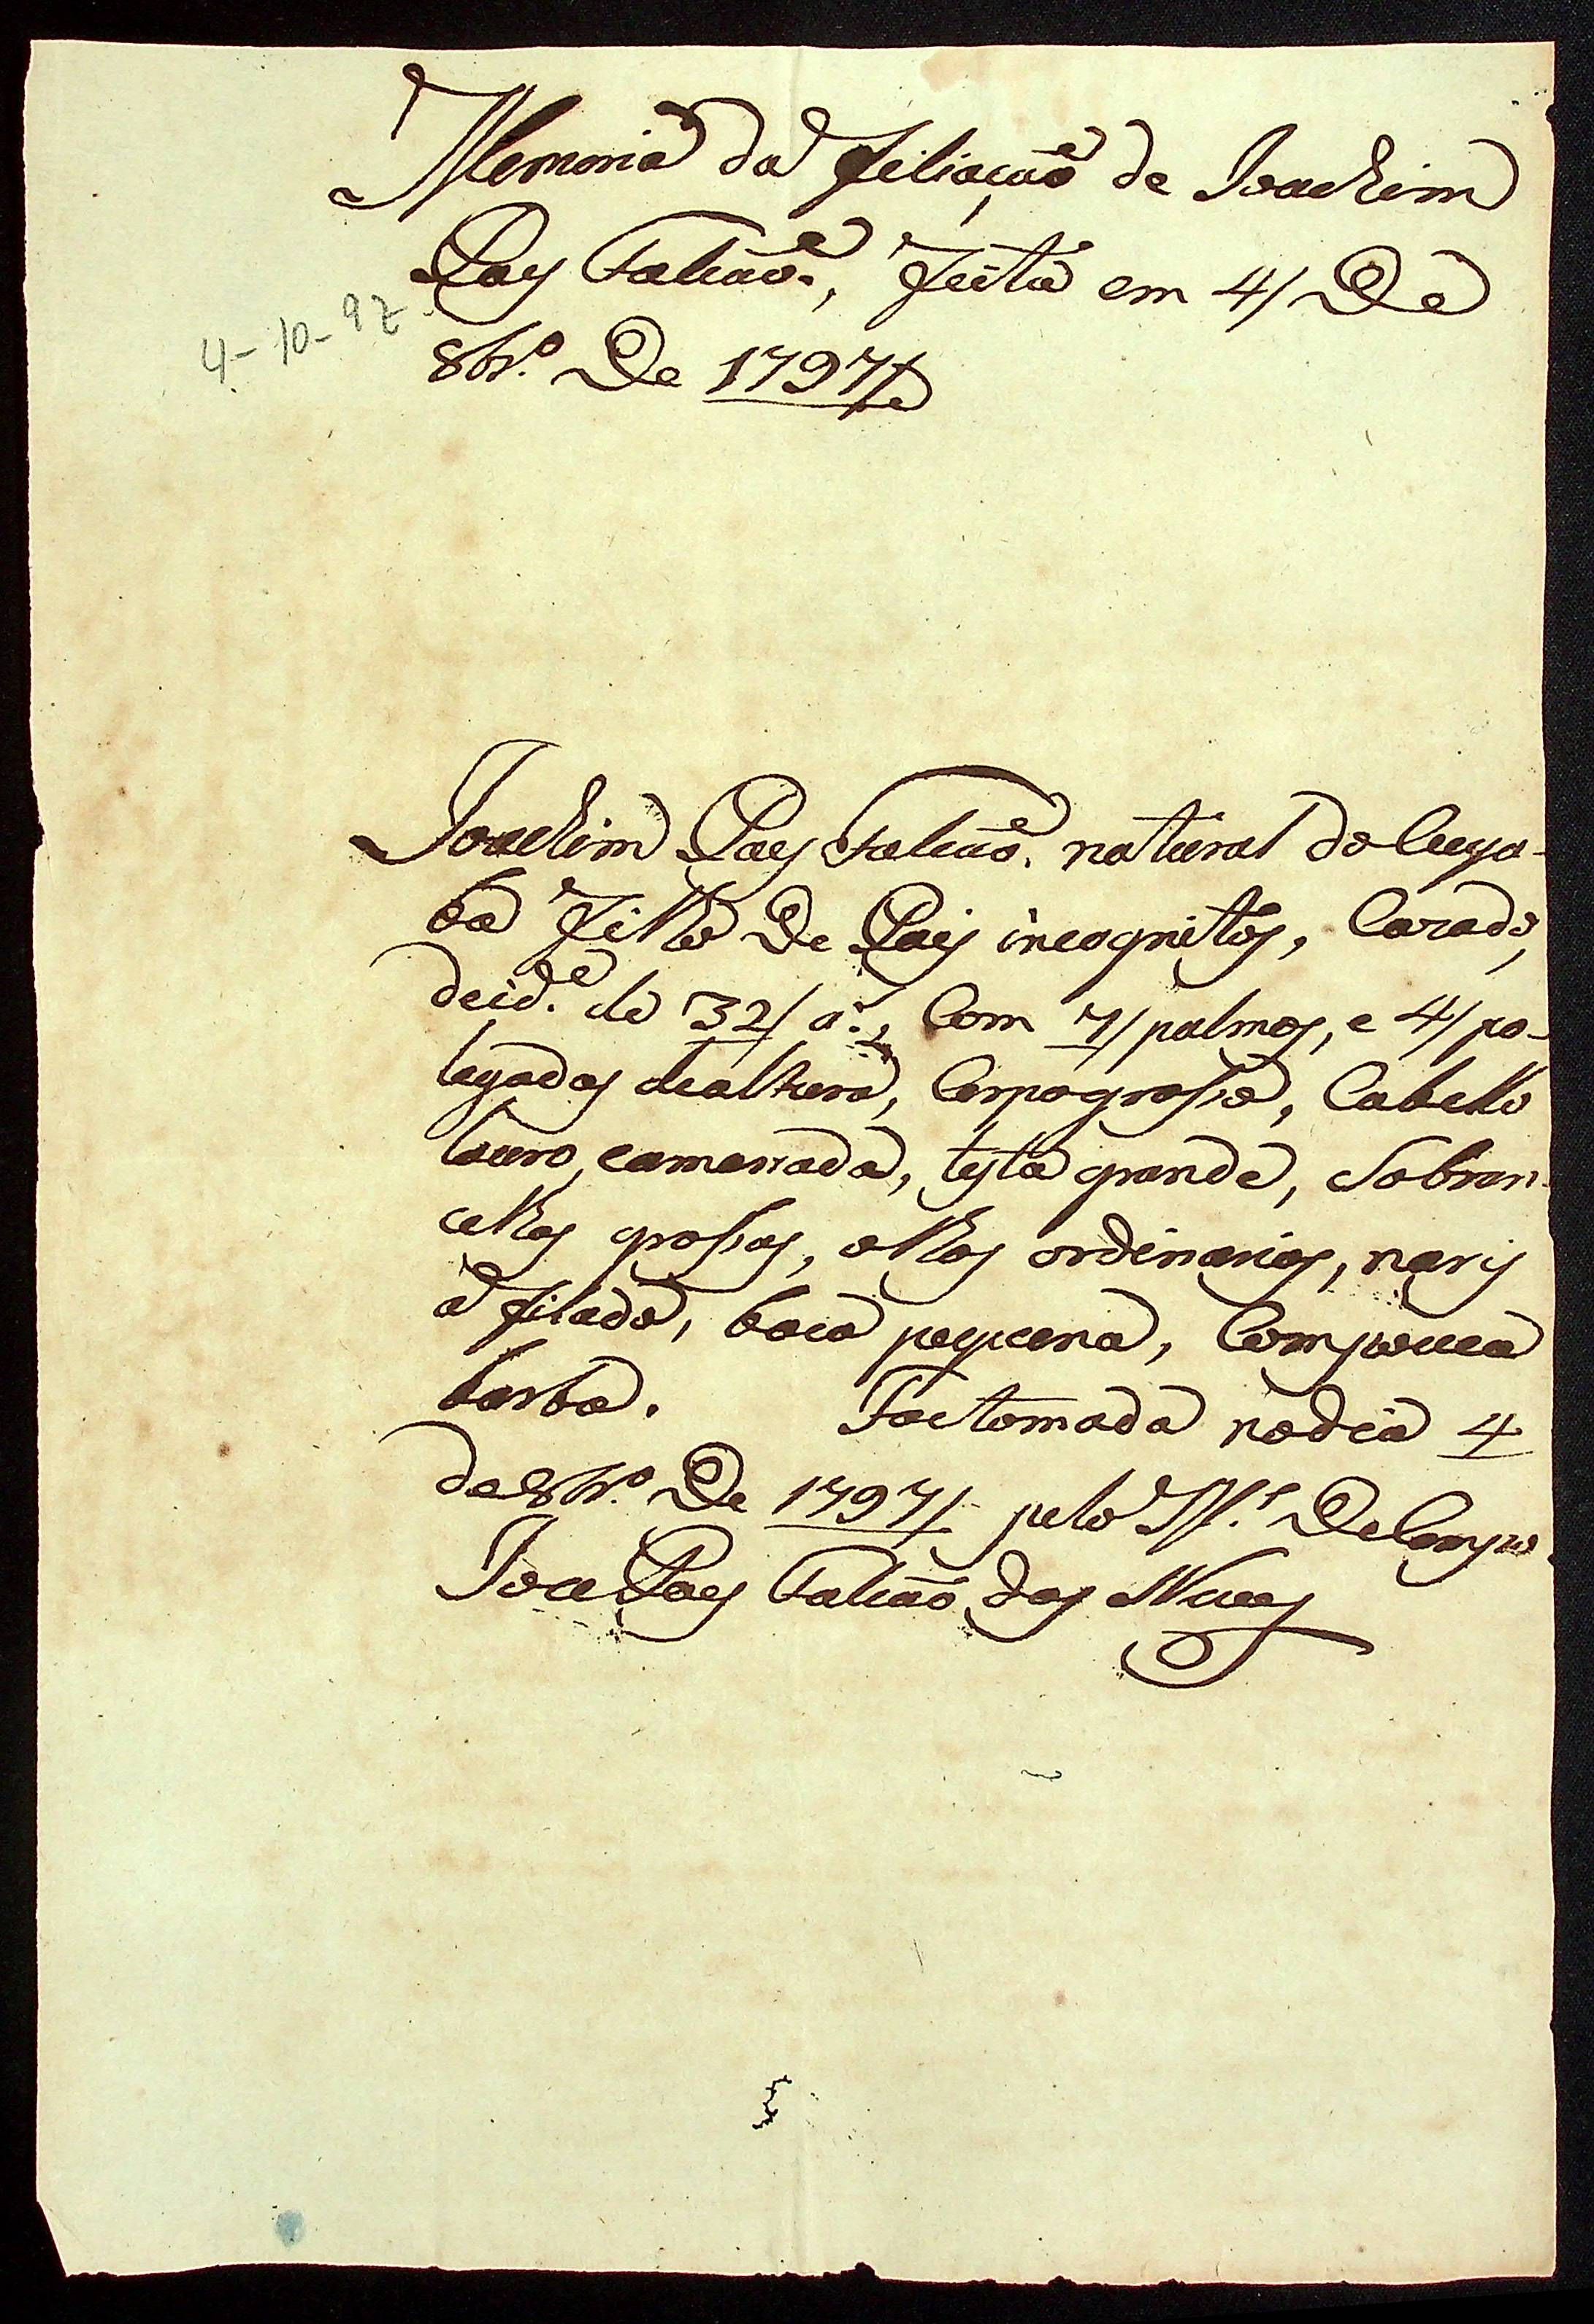 Memoria da filiação de Joachim
Paes Falcaõ., feita em 4/ De
8br.º De 1797//
4-10-97
Joachim Paes Falcaõ. natural do Cuya-
ba filho De Pais incognitos, Cazado,
deid.e de 32/ a.s, Com 7/ palmos, e 4/ po-
legadas dealtura, Corpo grosso, Cabello
louro, camarada, testa grande, Sobran-
celhas grossas, olhos ordinarios, naris
a filado, boca pequena, Com pouca
barba. Foe tomada nodia 4
de 8br.º De 1797/ pelo M.e De Campo
Joze Paes Falcaõ das Neves